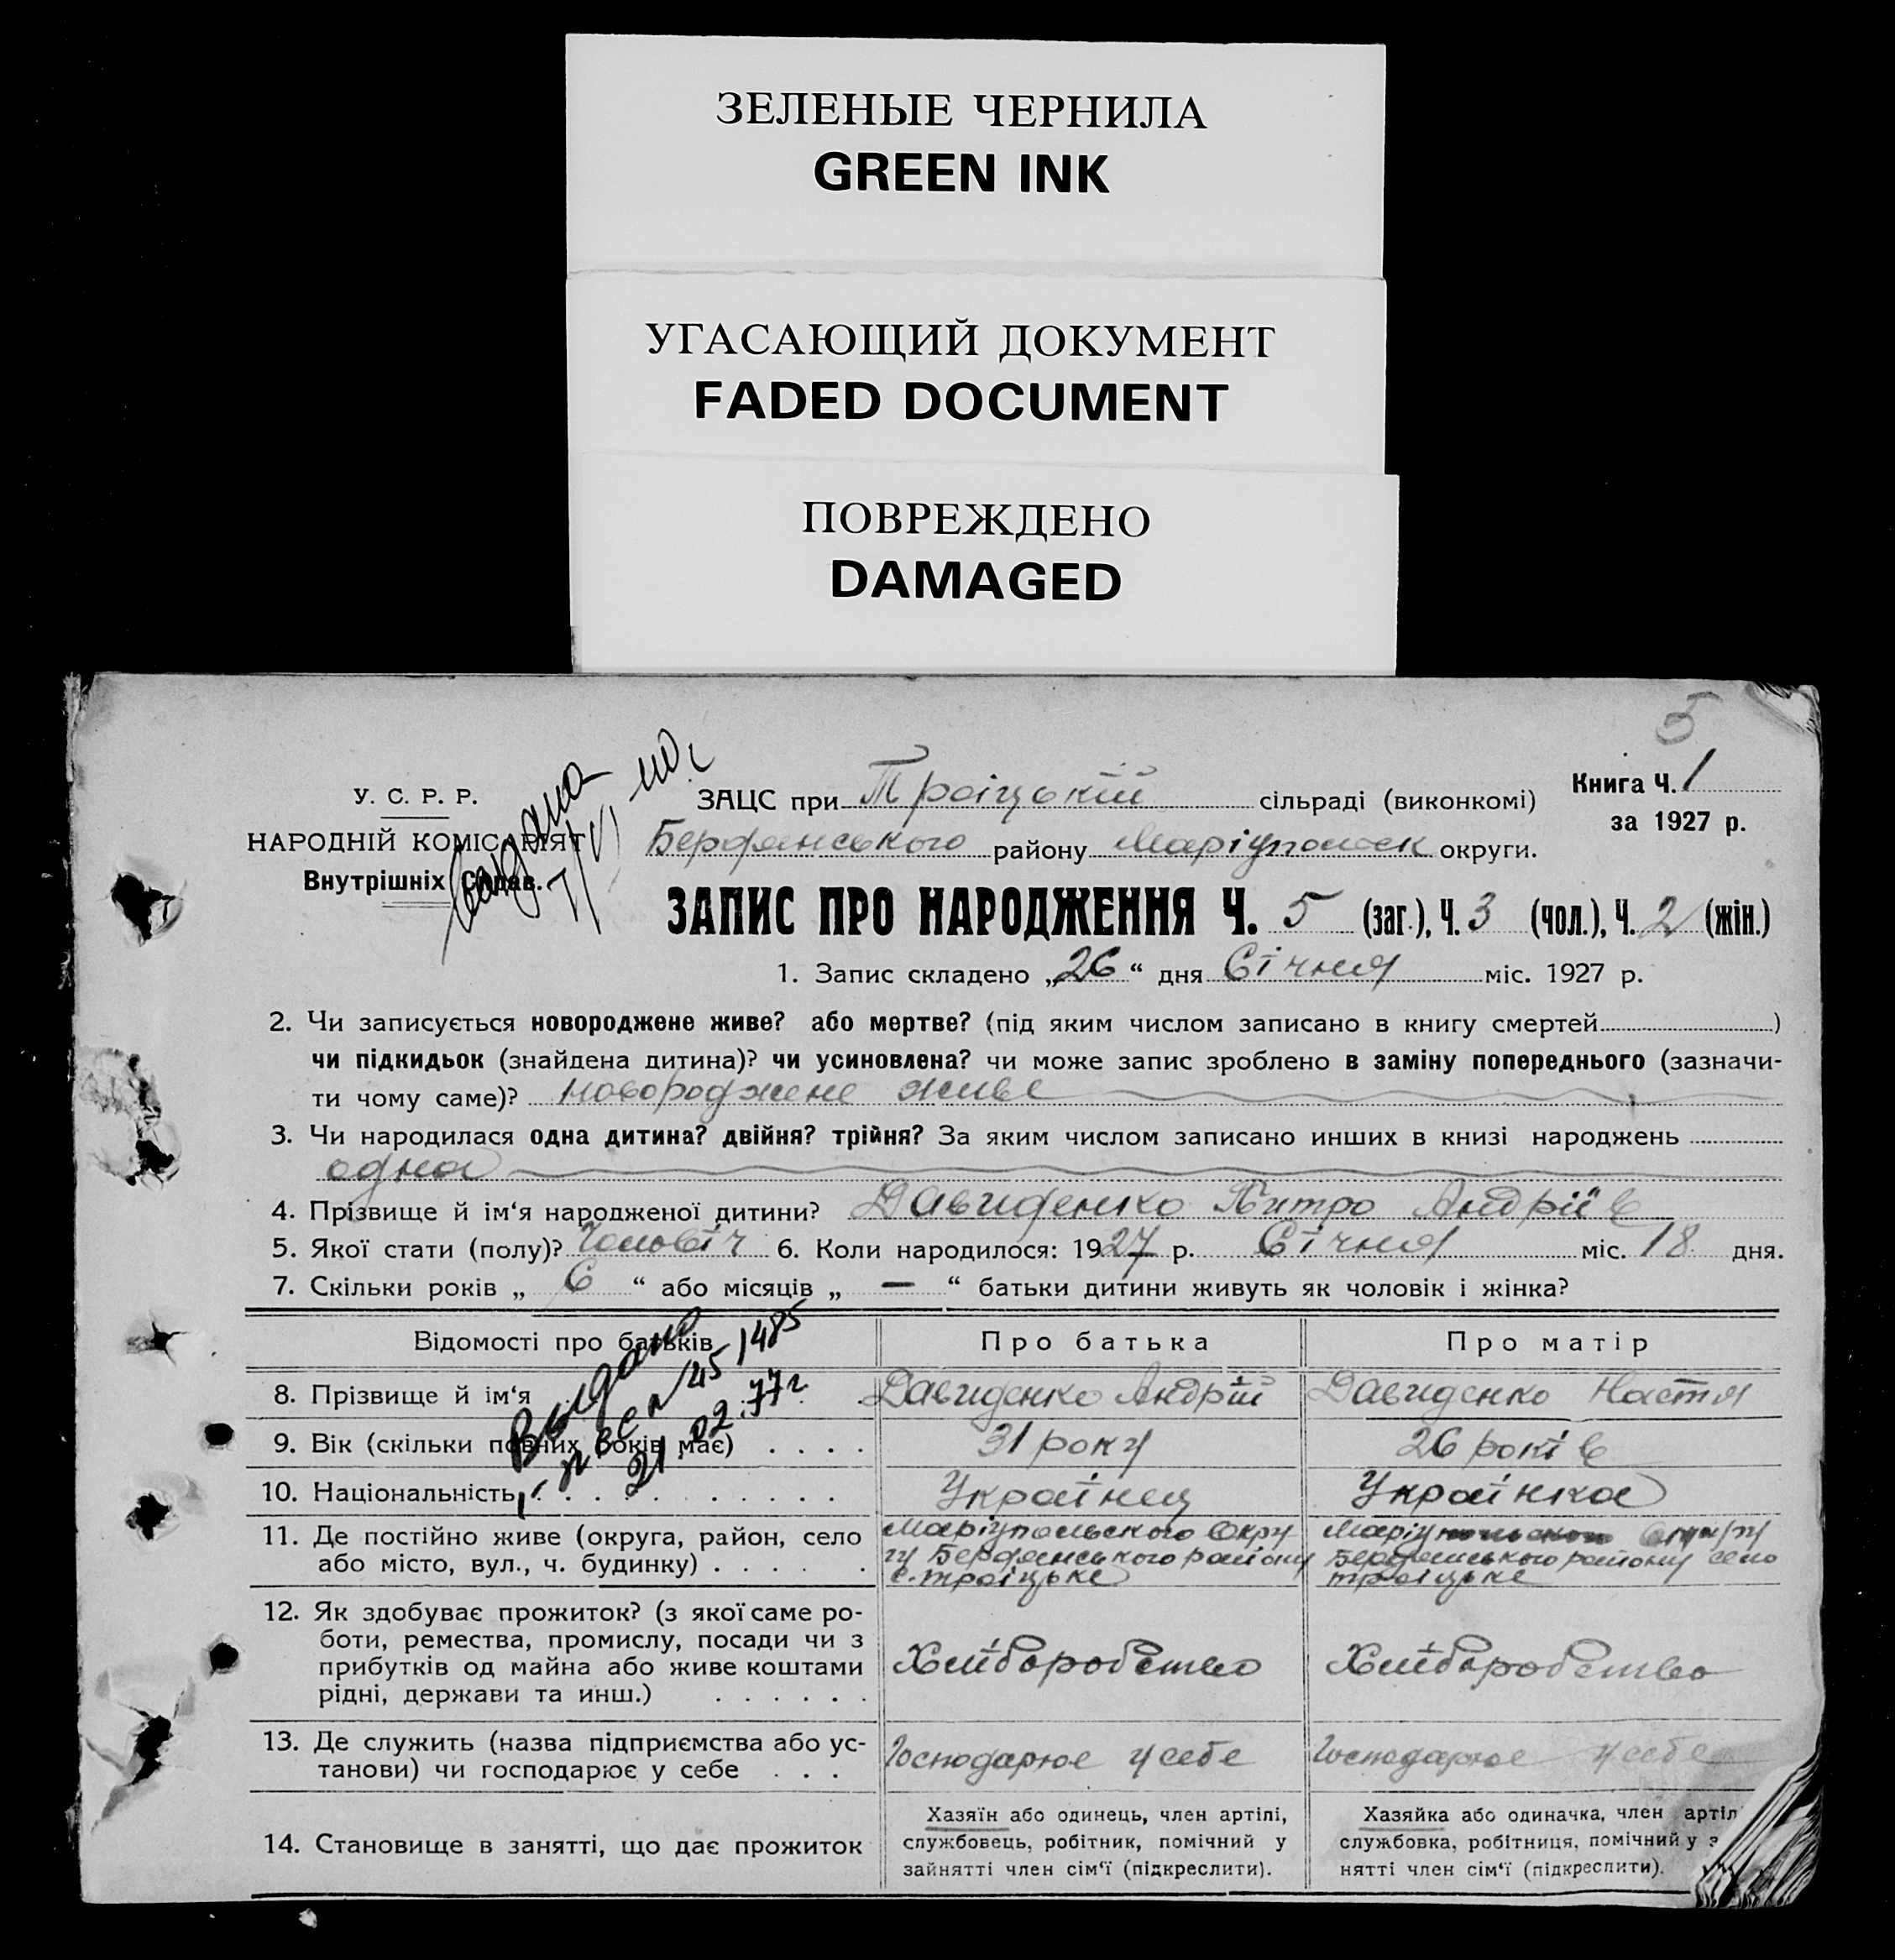 ЗЕЛЕНЫЕ ЧЕРНИЛА
GREEN INK
УГАСАЮЩИЙ ДОКУМЕНТ
FADED DOCUMENT
ПОВРЕЖДЕНО
DAMAGED
5
У. С. Р. Р.
НАРОДНІЙ КОМІСАРІЯТ
Внутрішніх Справ.
ЗАЦС при Троіцькій сільраді (виконкомі)
Книга Ч. 1
за 1927 р.
Бердянського району Маріупольск округи.
ЗАПИС ПРО НАРОДЖЕННЯ Ч. 5 (заг.), Ч. 3 (чол.), Ч. 2 (жін.)
1. Запис складено „26“ дня Січня міс. 1927 р.
2. Чи записується новороджене живе? або мертве? (під яким числом записано в книгу смертей )
чи підкидьок (знайдена дитина)? чи усиновлена? чи може запис зроблено в заміну попереднього (зазначи-
ти чому саме)? новороджене живе
3. Чи народилася одна дитина? двійня? трійня? За яким числом записано инших в книзі народжень
одна
4. Прізвище й ім‘я народженої дитини? Давиденко Дмитро Андріїв
5. Якої стати (полу)? Чоловіч 6. Коли народилося: 1927 р. Січня міс. 18 дня.
7. Скільки років „ 6 “ або місяців „ — “ батьки дитини живуть як чоловік і жінка?
Відомості про батьків
Про батька
Про матір
Выдано
21.02.77г
8. Прізвище й ім‘я
Давиденко Андрій
Давиденко Настя
9. Вік (скільки повних років має) . . . .
31 року
26 років
10. Національність . . . . . . . . . .
Українец
Українка
11. Де постійно живе (округа, район, село
або місто, вул., ч. будинку) . . . . .
Маріупольского Окру
гу Бердянського району
с. троіцьке
Маріупольского Округу
Бердянського району село
троіцьке
12. Як здобуває прожиток? (з якої саме ро-
боти, ремества, промислу, посади чи з
прибутків од майна або живе коштами
рідні, держави та инш.) . . . . . .
Хліборобство
Хліборобство
13. Де служить (назва підприємства або ус-
танови) чи господарює у себе . . .
Господарює у себе
Господарює у себе
14. Становище в занятті, що дає прожиток
Хазяїн або одинець, член артілі,
службовець, робітник, помічний у
зайнятті член сім‘ї (підкреслити).
Хазяйка або одиначка, член артіл
службовка, робітниця, помічний у з
нятті член сім‘ї (підкреслити).